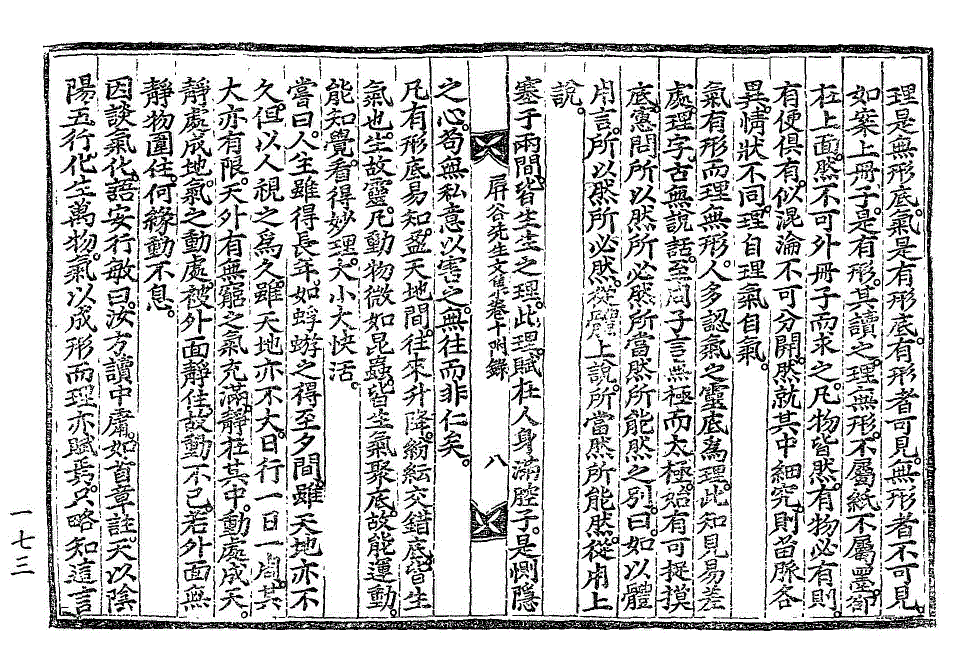 理是無形底。氣是有形底。有形者可見。無形者不可見。
如案上冊子。是有形。其讀之理無形。不屬紙不屬墨。卻
在上面。然不可外冊子而求之。凡物皆然。有物必有則。
有便俱有。似混淪不可分開。然就其中細究。則苗脈各
異。情狀不同。理自理氣自氣。
氣有形而理無形。人多認氣之靈底爲理。此知見易差
處。理字。古無說話。至周子言無極而太極。始有可捉摸
底。憲問所以然所必然所當然所能然之別。曰。如以體
用言。所以然所必然。從體上說。所當然所能然。從用上
說。
塞子兩間。皆生生之理。此理賦在人身。滿腔子。是惻隱
屛谷先生文集卷十 附錄 八
之心。苟無私意以害之。無往而非仁矣。
凡有形底易知。盈天地間。往來升降。紛紜交錯底。皆生
氣也。生故靈。凡動物微如昆蟲。皆生氣聚底。故能運動。
能知覺。看得妙理。大小大快活。
嘗曰。人生雖得長年。如蜉蝣之得至夕間。雖天地亦不
久。但以人視之爲久。雖天地亦不大。日行一日一周。其
大亦有限。天外有無窮之氣充滿。靜在其中。動處成天。
靜處成地。氣之動處。被外面靜住。故動不已。若外面無
靜物圍住。何緣動不息。
因談氣化。語安行敏曰。汝方讀中庸。如首章註。天以陰
陽五行化生萬物。氣以成形而理亦賦焉。只略知這言
一七三